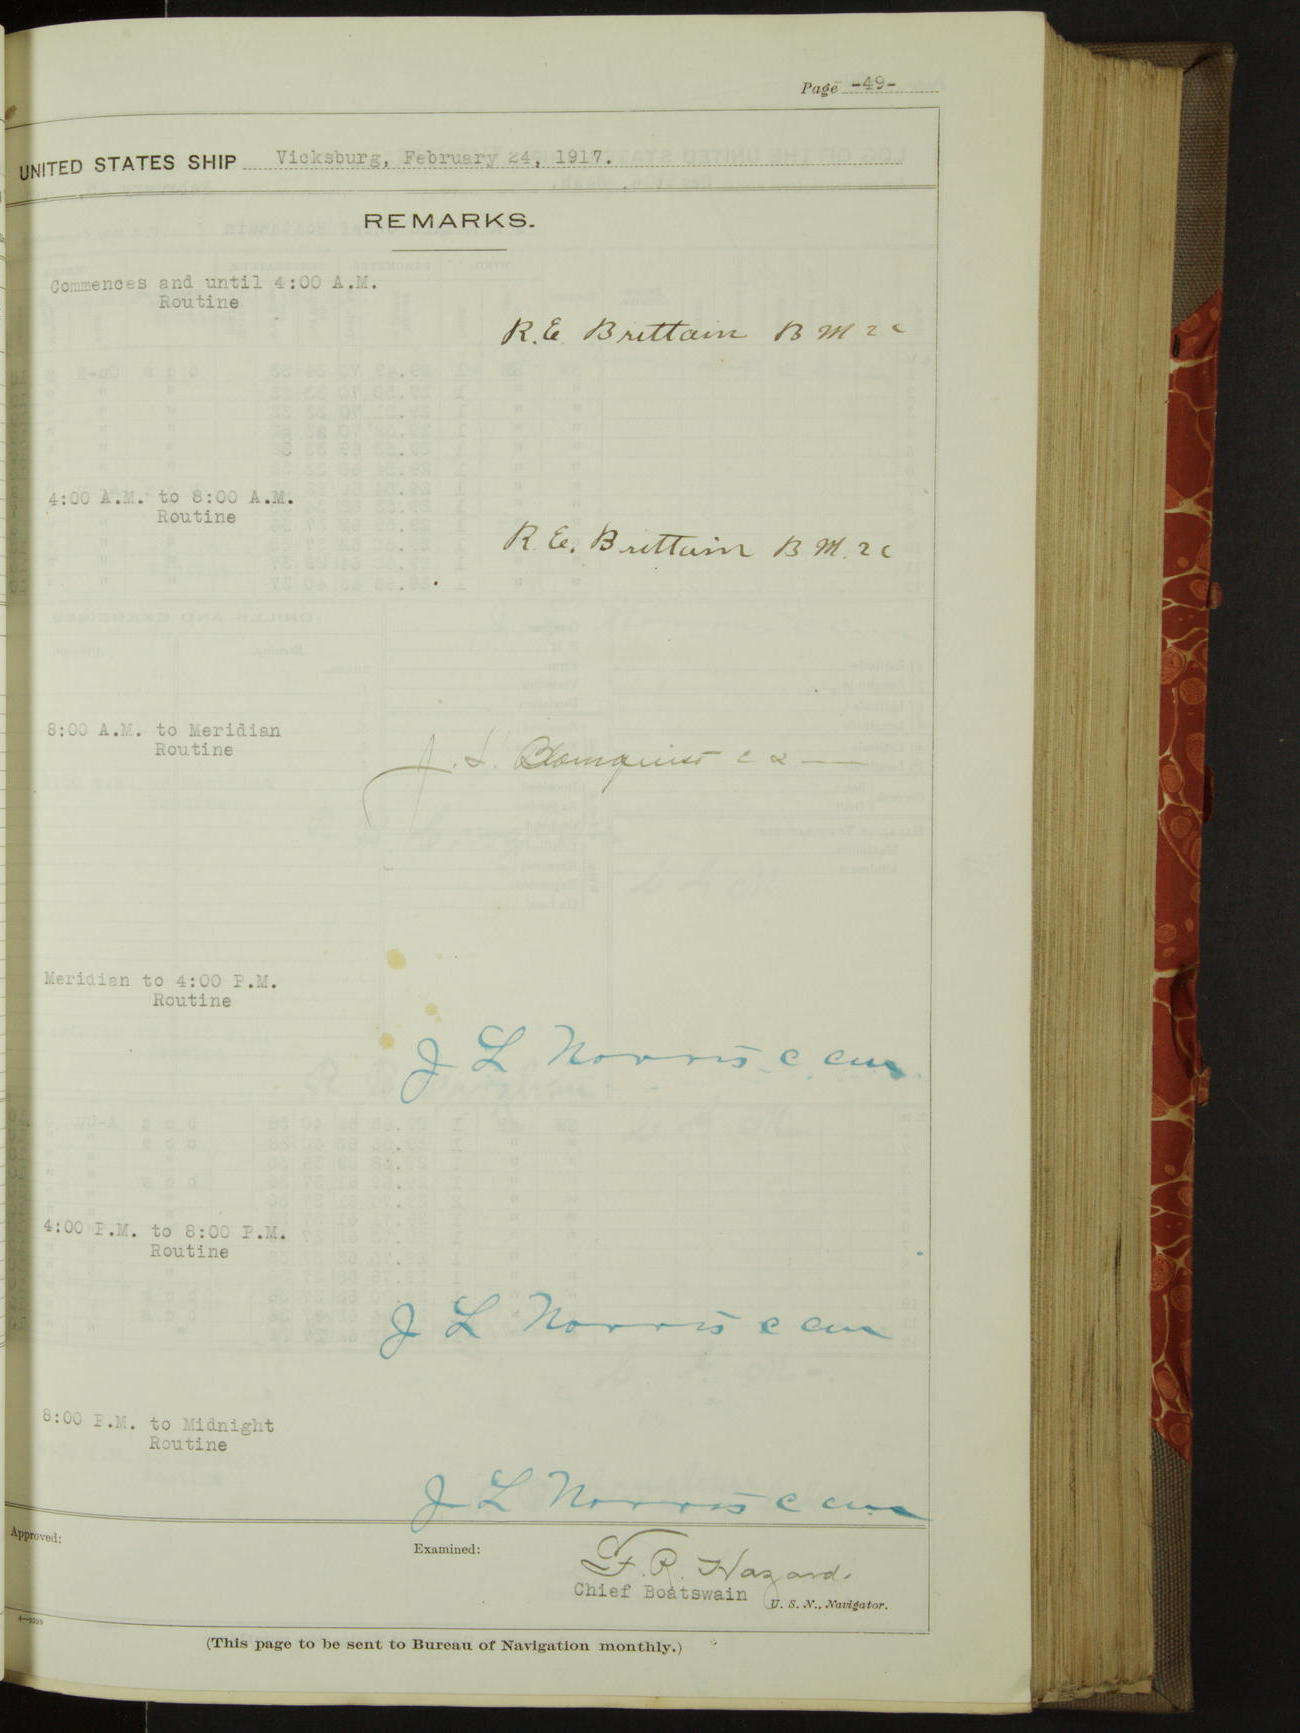 Page -49-
UNITED STATES SHIP Vicksburg, February 24, 1917.
REMARKS.
Commences and until 4:00 A.M.
Routine
R.E. Brittain B M 2 c
4:00 A.M. to 8:00 A.M.
Routine
R.E. Brittain B M. 2 c
8:00 A.M. to Meridian
Routine
J. L. Blomquist
Meridian to 4:00 P.M.
Routine
J L Norris C
4:00 P.M. to 8:00 P.M.
Routine
J L Norris C
8:00 P.M. to Midnight
Routine
J L Norris C
Approved:
Examined:
F. R. Hazard.
Chief Boatswain U. S. N., Navigator.
(This page to be sent to Bureau of Navigation monthly.)